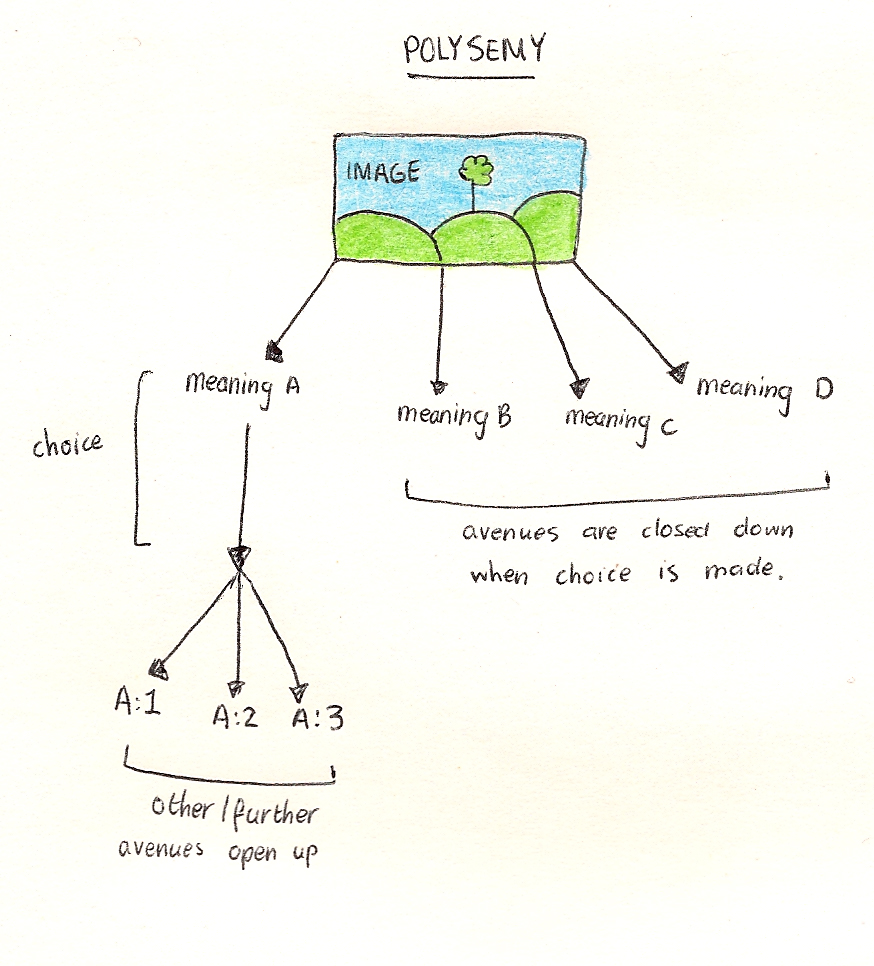 POLYSEMY
IMAGE
meaning A
meaning B
meaning C
meaning D
choice
avenues are closed down
when choice is made.
A:1
A:2
A:3
other/further
avenues open up